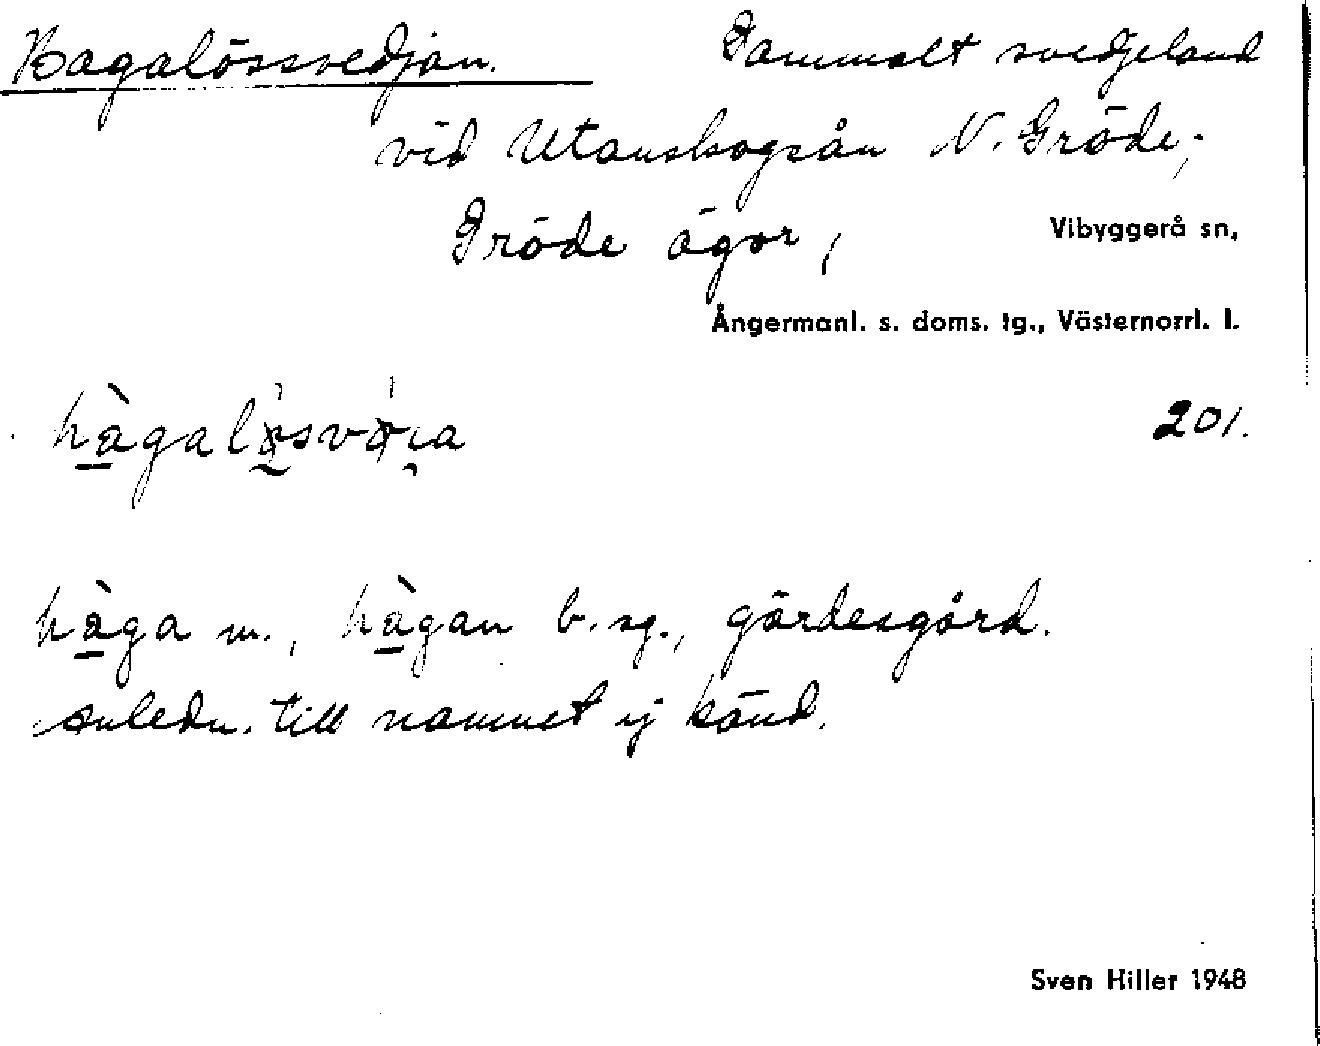 Hagalössvedjan. Gammalt svedjeland
vid Utanskogsån N. Gröde,
Gröde ägor, Vibyggerå sn,
Ångermanl. s. doms. tg., Västernorrl. l.
201.
hàga m., hàgan b. sg., gärdesgård.
Anledn. till namnet ej känd.
Sven Hiller 1948